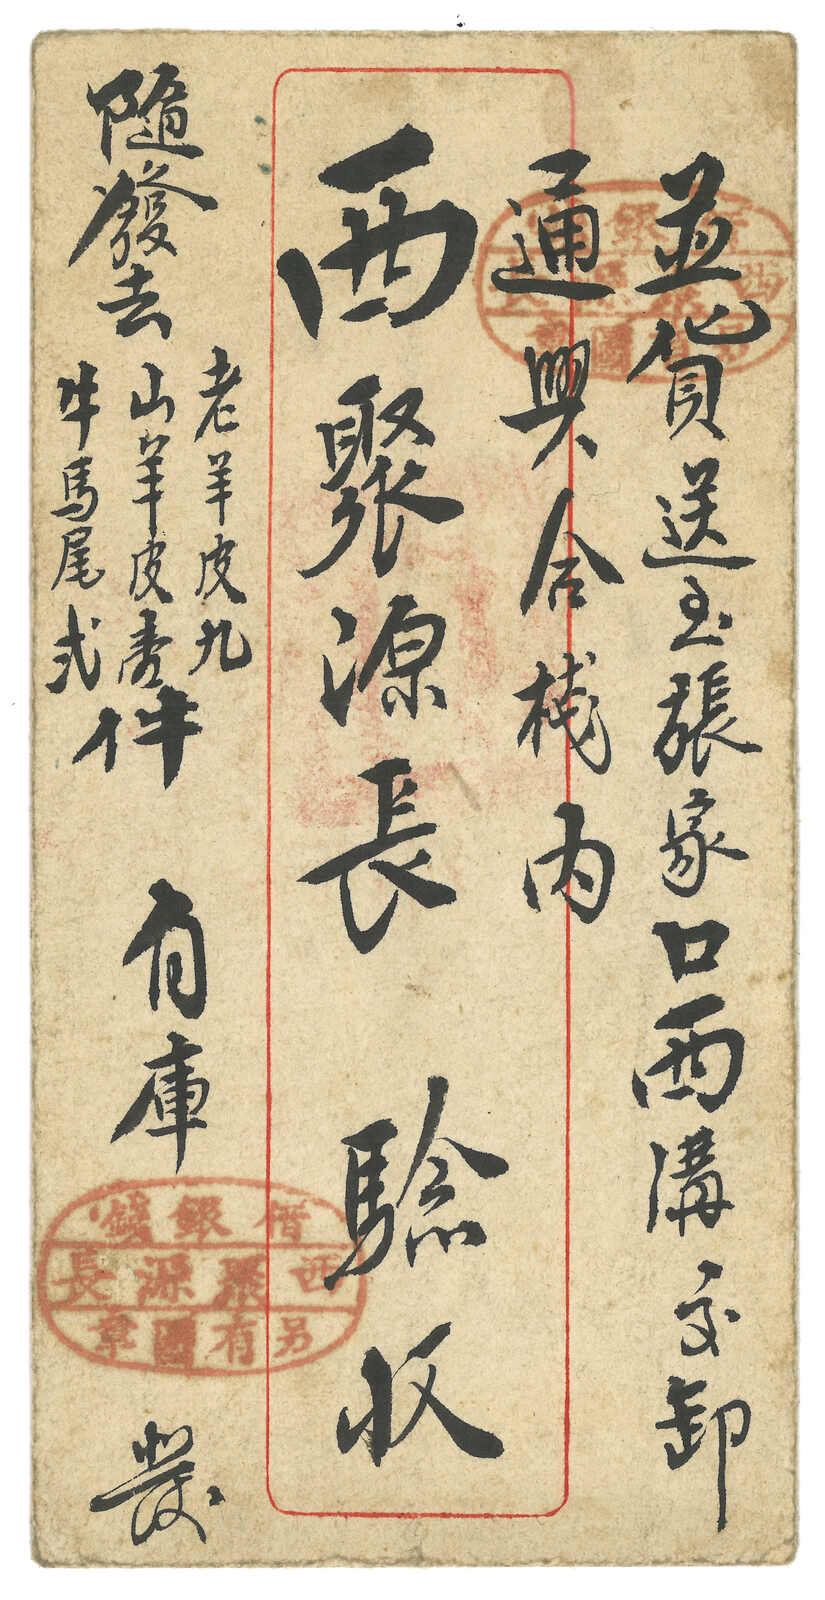 並貨送至張家口西溝交卸
通興合栈内
西聚源長 驗收
隨發去
老羊皮九
山羊皮壹
牛馬尾弍
件 自庫
發
借銀錢
西聚源長
另有圖章
借銀錢
西聚源長
另有圖章